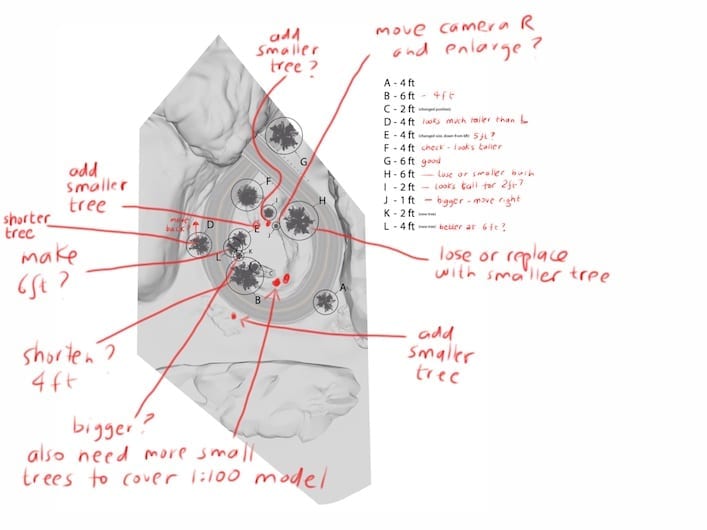 add
smaller
tree?
move camera R
and enlarge?
A - 4 ft
B - 6 ft - 4ft
C - 2 ft (changed position)
D - 4 ft looks much taller than L
E - 4 ft 5ft?
F - 4 ft check - looks taller
G - 6 ft good
H - 6 ft — lose or smaller bush
I - 2 ft — looks tall for 2ft?
J - 1 ft — bigger - move right
K - 2 ft (new tree)
L - 4 ft (new tree) better as 6ft?
G
F
H
add
smaller
tree
shorter
tree
move
back?
D
E
J
J
K
L
B
A
make
6ft?
lose or replace
with smaller tree
shorten?
4ft
add
smaller
tree
bigger?
also need more small
trees to cover 1:100 model